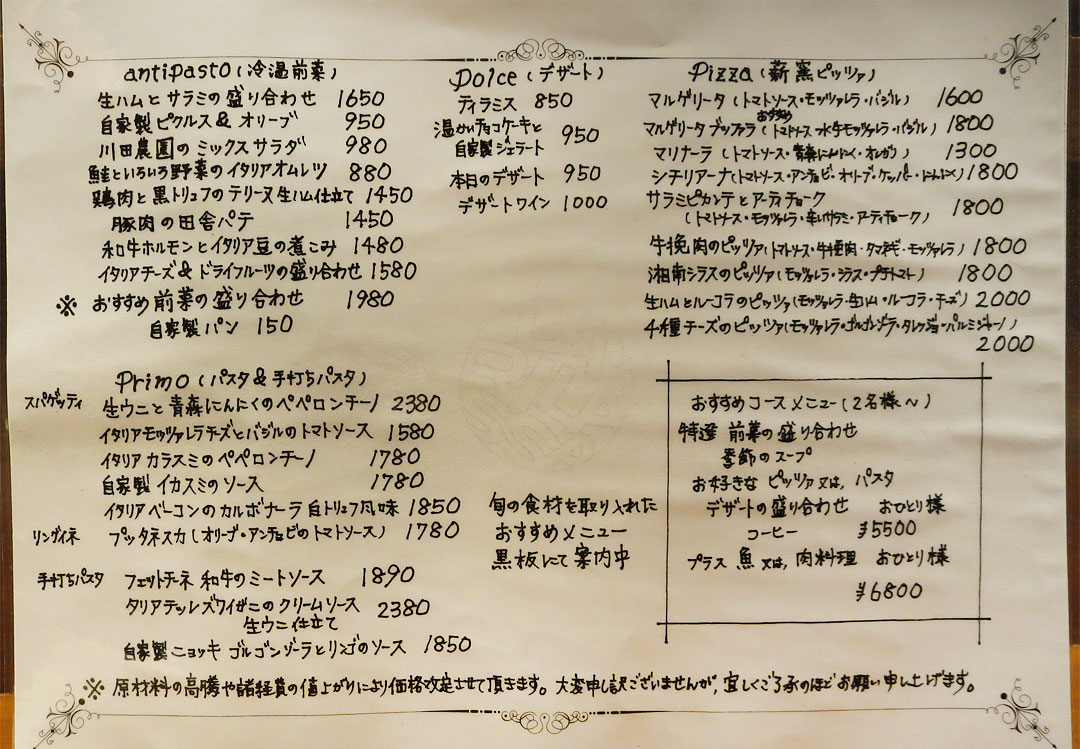 antipasto(冷温前菜)
生ハムとサラミの盛り合わせ 1650
自家製ピクルス& オリーブ 950
川田農園のミックスサラダ 980
鮭といろいろ野菜のイタリアオムレツ 880
鶏肉と黒トリュフのテリーヌ生ハム仕立て 1450
豚肉の田舎パテ 1450
和牛ホルモンとイタリア豆の煮こみ 1480
イタリアチーズ&ドライフルーツの盛り合わせ 1580
※ おすすめ前菜の盛り合わせ 1980
自家製パン 150
Primo(パスタ&手打ちパスタ)
スパゲッティ 生ウニと青森にんにくのペペロンチーノ 2380
イタリアモッツァレラチーズとバジルのトマトソース 1580
イタリアカラスミのペペロンチーノ 1780
自家製イカスミのソース 1780
イタリアベーコンのカルボナーラ白トリュフ風味 1850
リングイネ プッタネスカ(オリーブ・アンチョビのトマトソース) 1780
手打ちパスタ フェットチーネ 和牛のミートソース 1890
タリアテッレズワイガニのクリームソース 2380
生ウニ仕立て
自家製ニョッキ ゴルゴンゾーラとリンゴのソース 1850
Dolce(デザート)
ティラミス 850
温かいチョコケーキと
自家製ジェラート 950
本日のデザート 950
デザートワイン 1000
旬の食材を取り入れた
おすすめメニュー
黒板にて案内中
Pizza(薪窯ピッツァ)
マルゲリータ(トマトソース・モッツァレラ・バジル) 1600
おすすめ
マルゲリータブッファラ(トマトソース・水牛モッツァレラ・バジル) 1800
マリナーラ(トマトソース・青森にんにく・オレガノ) 1300
シチリアーナ(トマトソース・アンチョビ・オリーブ・ケッパー・にんにく) 1800
サラミピカンテとアーティチョーク
(トマトソース・モッツァレラ・辛いサラミ・アーティチョーク) 1800
牛挽肉のピッツァ(トマトソース・牛挽肉・タマネギ・モッツァレラ) 1800
湘南シラスのピッツァ(モッツァレラ・シラス・プチトマト) 1800
生ハムとルーコラのピッツァ(モッツァレラ・生ハム・ルーコラ・チーズ) 2000
4種チーズのピッツァ(モッツァレラ・ゴルゴンゾーラ・タレッジョ・パルミジャーノ)
2000
おすすめコースメニュー(2名様〜)
特選 前菜の盛り合わせ
季節のスープ
お好きな ピッツァ又は、パスタ
デザートの盛り合わせ おひとり様
コーヒー ¥5500
プラス 魚又は、肉料理 おひとり様
¥6800
※ 原材料の高騰や諸経費の値上がりにより価格改定させて頂きます。大変申し訳ございませんが、宜しくご了承のほどお願い申し上げます。